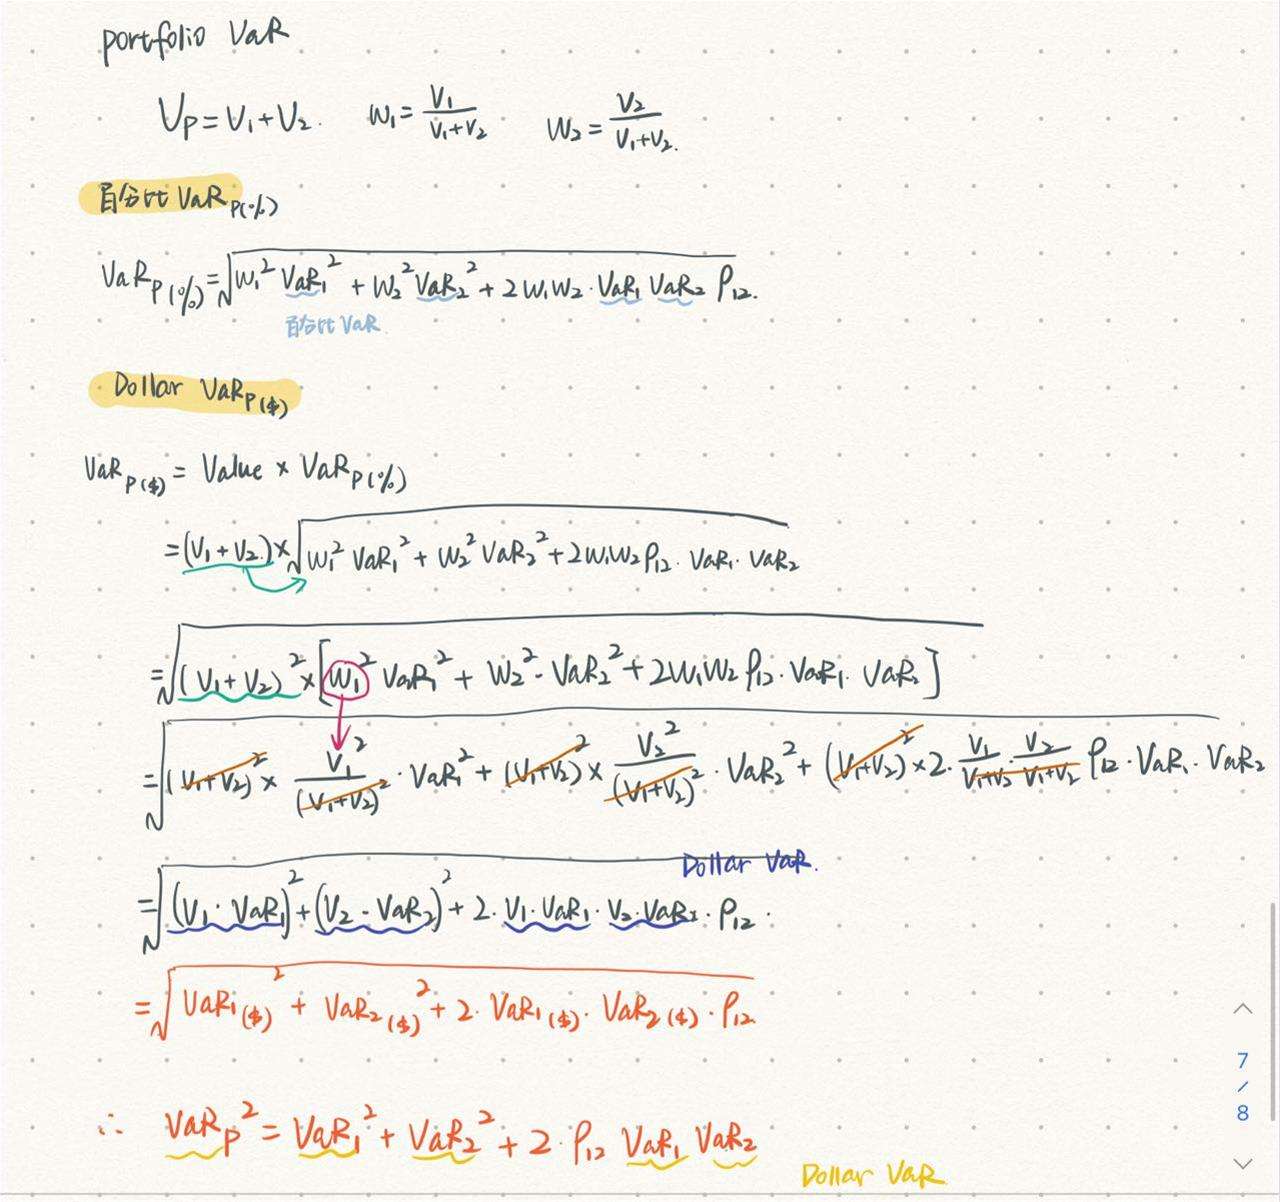 portfolio VaR
V_P = V_1 + V_2. W_1 = V_1/(V_1+V_2) W_2 = V_2/(V_1+V_2).
百分比 VaR_P(%)
VaR_P(%) = √(W_1² VaR_1² + W_2² VaR_2² + 2 W_1 W_2 · VaR_1 VaR_2 ρ_12.)
百分比 VaR
Dollar VaR_P($)
VaR_P($) = Value × VaR_P(%)
= (V_1 + V_2) × √(W_1² VaR_1² + W_2² VaR_2² + 2 W_1 W_2 ρ_12 · VaR_1 · VaR_2)
= √((V_1 + V_2)² × [W_1² VaR_1² + W_2² · VaR_2² + 2 W_1 W_2 ρ_12 · VaR_1 · VaR_2])
= √((V_1+V_2)² × V_1²/(V_1+V_2)² · VaR_1² + (V_1+V_2)² × V_2²/(V_1+V_2)² · VaR_2² + (V_1+V_2)² × 2 · V_1/(V_1+V_2) · V_2/(V_1+V_2) ρ_12 · VaR_1 · VaR_2)
Dollar VaR.
= √((V_1 · VaR_1)² + (V_2 · VaR_2)² + 2 · V_1 · VaR_1 · V_2 · VaR_2 · ρ_12 .)
= √(VaR_1($)² + VaR_2($)² + 2 · VaR_1($) · VaR_2($) · ρ_12)
∴ VaR_P² = VaR_1² + VaR_2² + 2 · ρ_12 VaR_1 VaR_2
Dollar VaR
7
/
8